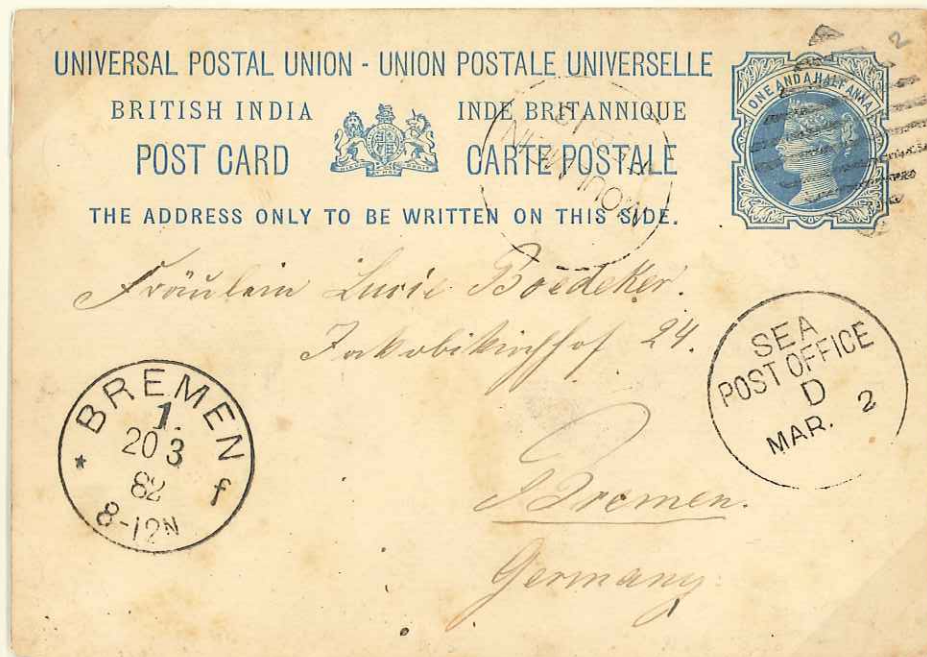 UNIVERSAL POSTAL UNION - UNION POSTALE UNIVERSELLE
BRITISH INDIA INDE BRITANNIQUE
POST CARD CARTE POSTALE
THE ADDRESS ONLY TO BE WRITTEN ON THIS SIDE.
ONE AND A HALF ANNA
Fräulein Lucie Boedeker.
Jakobikirchhof 24.
Bremen.
Germany
SEA
POST OFFICE
D
MAR. 2
BREMEN
1.
20 3
82
8-12N
* f